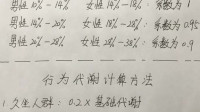 男性10%-14% 女性18%-28%:系数为1
男性14%-20% 女性28%:系数为0.95
男性20%-28% 女性28%-38%:系数为0.9
行为代谢计算方法
1.久坐人群:0.2×基础代谢